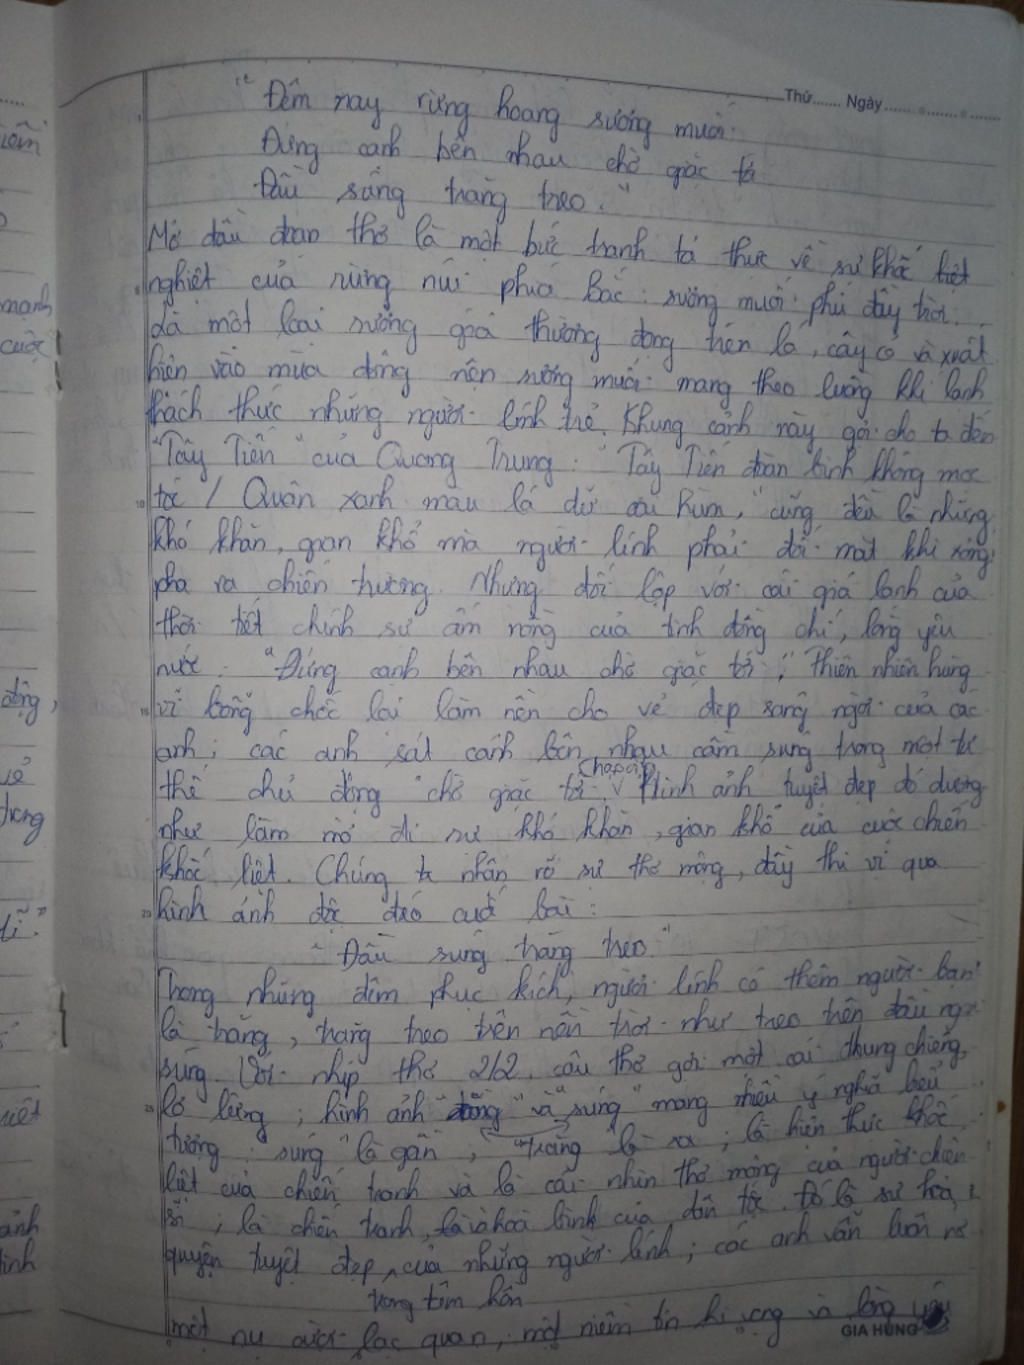 Thứ...... Ngày...............
"Đêm nay rừng hoang sương muối
Đứng cạnh bên nhau chờ giặc tới
Đầu súng trăng treo."
Mở đầu đoạn thơ là một bức tranh tả thực về sự khắc liệt
nghiệt của rừng núi phía Bắc: sương muối phủ đầy trời.
Là một loại sương giá thường đọng trên lá, cây cỏ và xuất
hiện vào mùa đông nên sương muối mang theo luồng khí lạnh
thách thức những người lính trẻ. Khung cảnh này gợi cho ta đến
"Tây Tiến" của Quang Trung: "Tây Tiến đoàn binh không mọc
tóc / Quân xanh màu lá dữ oai hùm," cũng đều là những
khó khăn, gian khổ mà người lính phải đối mặt khi xông
pha ra chiến trường. Nhưng đối lập với cái giá lạnh của
thời tiết chính sự ấm nóng của tình đồng chí, lòng yêu
nước: "Đứng cạnh bên nhau chờ giặc tới", thiên nhiên hùng
vĩ bỗng chốc lại làm nền cho vẻ đẹp sáng ngời của các
anh; các anh sát cánh bên nhau cầm súng trong một tư
thế chủ động "chờ giặc tới". Hình ảnh tuyệt đẹp đó dường
như làm mờ đi sự khó khăn, gian khổ của cuộc chiến
khốc liệt. Chúng ta nhận rõ sự thơ mộng, đầy thi vị qua
hình ảnh độc đáo cuối bài:
"Đầu súng trăng treo"
Trong những đêm phục kích, người lính có thêm người bạn
là trăng, trăng treo trên nền trời như treo trên đầu ngọn
súng. Với nhịp thơ 2/2, câu thơ gợi một cái chung chiêng,
lơ lửng; hình ảnh "trăng" và "súng" mang nhiều ý nghĩa biểu
tượng: súng" là gần, "trăng" là xa; là hiện thực khốc
liệt của chiến tranh và là cái nhìn thơ mộng của người chiến
sĩ; là chiến tranh, là hoà bình của dân tộc. Đó là sự hoà
quyện tuyệt đẹp của những người lính; các anh vẫn luôn nở
trong tâm hồn
một nụ cười lạc quan, một niềm tin hi vọng và lòng yêu
GIA HƯNG